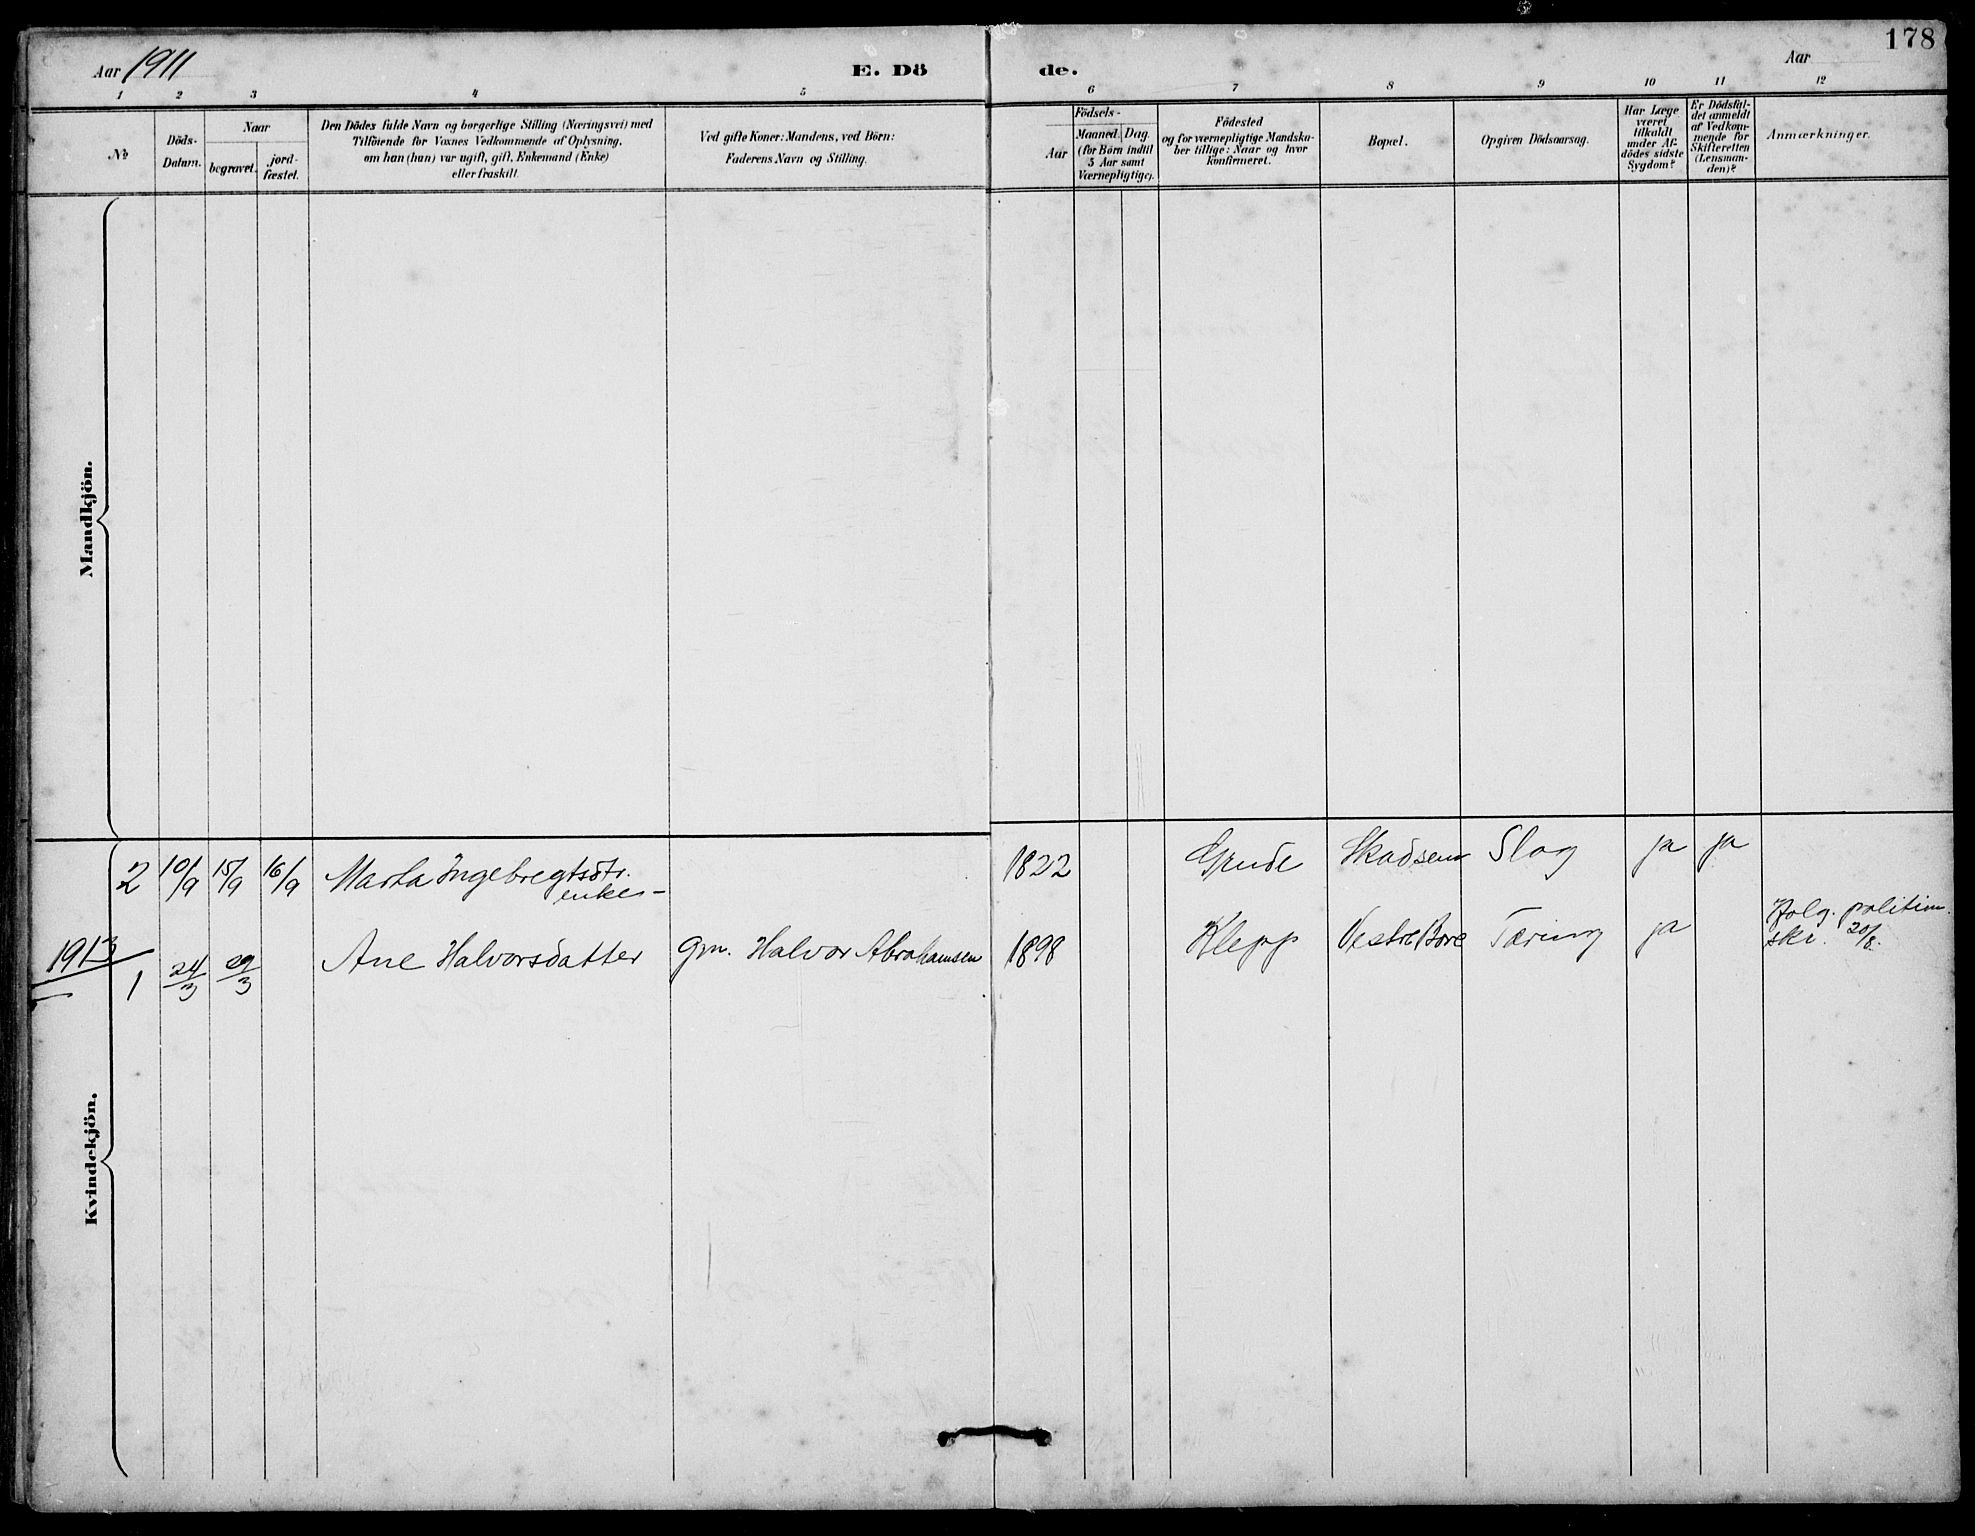 178
Aar 1911
E. Dö
de.
Aar
1 2 3 4 5 6 7 8 9 10 11 12
No
Döds-
Datum.
Naar
begravet.
jord-
fæstet.
Den Dödes fulde Navn og borgerlige Stilling (Næringsvei) med
Tilföiende for Voxnes Vedkommende af Oplysning,
om han (hun) var ugift, gift, Enkemand (Enke)
eller fraskilt.
Ved gifte Koner: Mandens, ved Börn:
Faderens Navn og Stilling.
Födsels-
Aar
Maaned.
Dag.
(for Börn indtil
5 Aar samt
Værnepligtige).
Födested
og for værnepligtige Mandska-
ber tillige: Naar og hvor
konfirmeret.
Bopæl.
Opgiven Dödsaarsag.
Har Læge
været
tilkaldt
under Af-
dödes sidste
Sygdom?
Er Dödsfal-
det anmeldt
af Vedkom-
mende for
Skifteretten
(Lensman-
den)?
Anmærkninger.
Mandkjön.
2 10/9 15/9 16/9 Marta Ingebregtsdtr. 1822 Grude Skadsem Slag ja ja
enke-
1913
1 24/3 29/3 Ane Halvorsdatter gm. Halvor Abrahamsen 1898 Klepp Vestre Bore Tæring ja
20/8.
Kvindekjön.